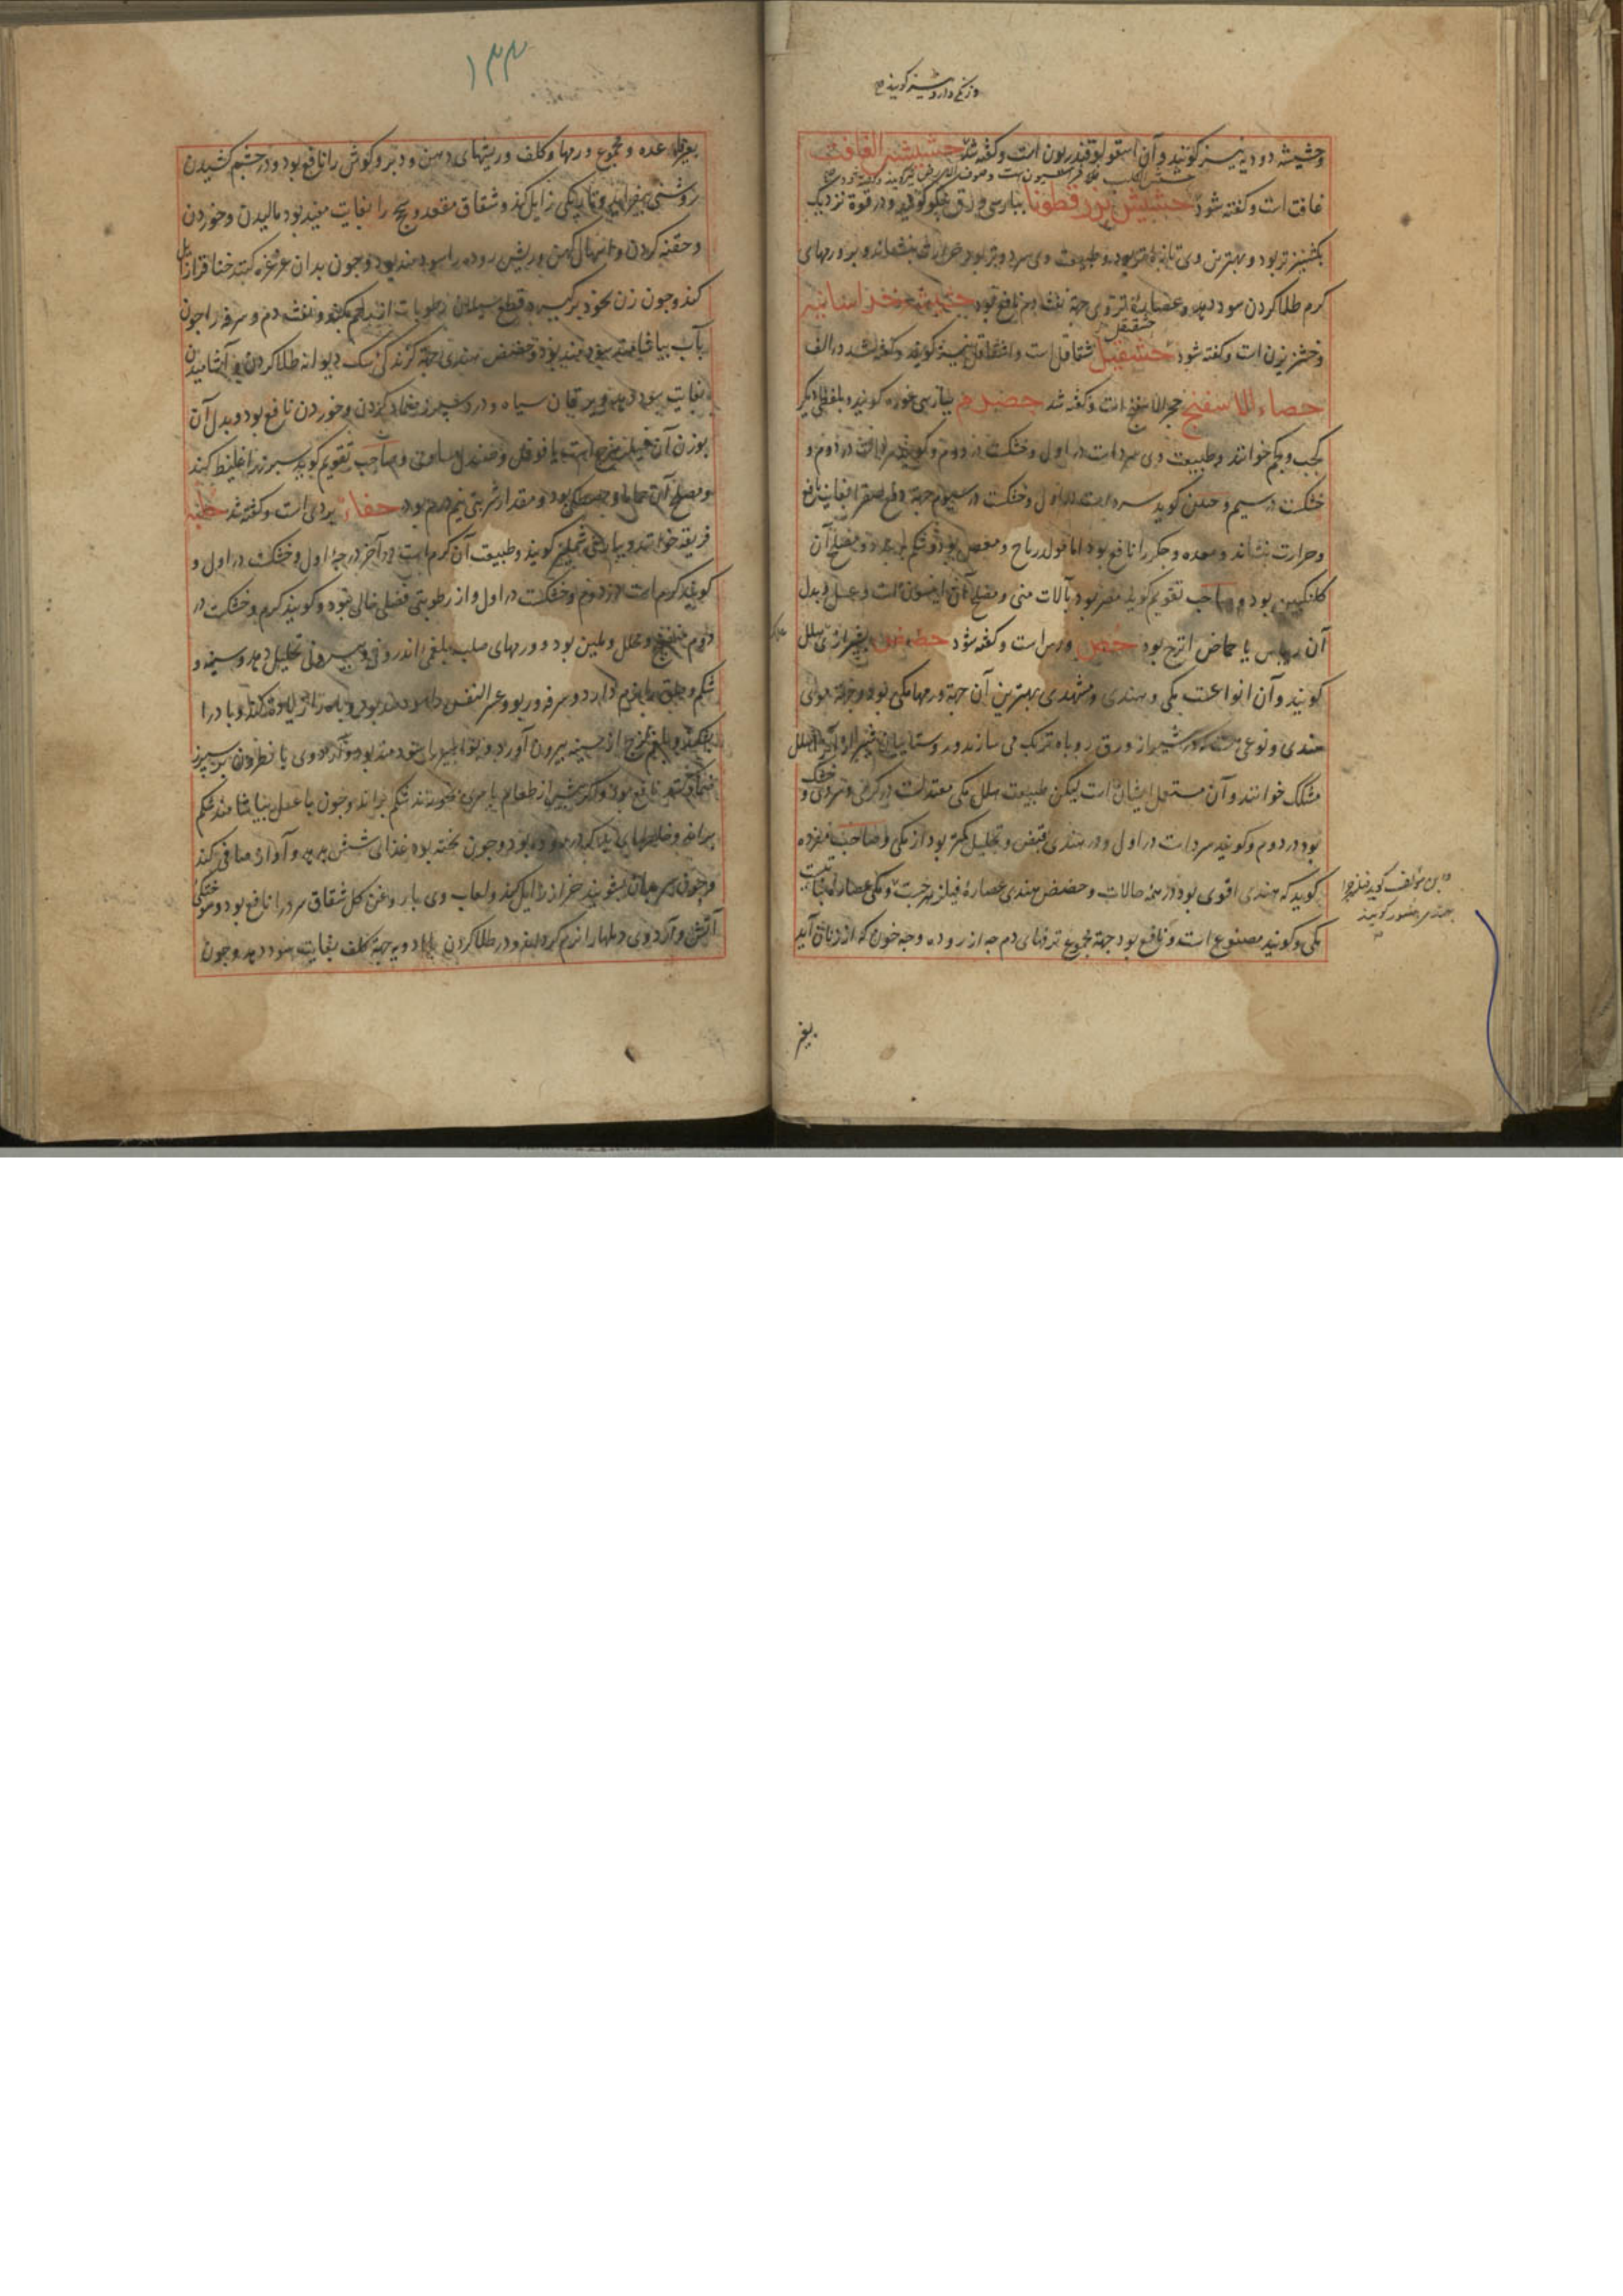 و زنکی دارو نیز کویند
وحشیشه دودیه نیز کویند و آن اسقولوقندریون است و کفته شد حشیشة الغافت
غافت است و کفته شود حشیش بزرقطونا بپارسی ورق کویند و در قوة نزدیک
بکشنیز تر بود و بهترین وی تازه بود و طبیعت وی سرد و تر بود حرارت بنشاند و بر ورمهای
کرم طلا کردن سود دهد و عصاره تر وی جهة نفث دم نافع بود حشیشه خراسانیه
وخشیزن است و کفته شود حشقیل شقاقل است و اشقاقل نیز کویند و کفته شد در الف
حشقیقل
حصاء الاسفنج حجر الاسفنج است و کفته شد حصرم بپارسی غوره کویند و بلفظی دیکر
کحب و کم خوانند و طبیعت وی سرد است در اول و خشکست در دوم و کویند سرد است در دوم و
خشکست در سیم و حنین کوید سرد است در اول و خشکست در سیوم جهة قطع صفرا بغایت نافع
و حرارت بنشاند و معده و جکر را نافع بود اما مولد ریاح و مغص بود و شکم ببندد و مصلح آن
کلنکبین بود و صاحب تقویم کوید مضر بود بآلات منی و مصلح آن انیسون است و عسل و بدل
آن ریباس یا حماض اترج بود حص ورس است و کفته شود حضض بشیرازی هلل
کویند و آن انواعست مکی و هندی و مشهدی بهترین آن جهة ورمها مکی بود و جهة موی
هندی و نوعی هست که در شیراز از ورق روباه تربک می سازند و روستاییان شیراز آنرا هلل
مشکک خوانند و آن مستعمل ایشان است لیکن طبیعت هلل مکی معتدلست در کرمی و سردی و خشک
بود در دوم و کویند سرد است در اول و در هندی قبض و تحلیل کمتر بود از مکی و صاحب مفرده
کوید که هندی اقوی بود در همه حالات و حضض هندی عصاره فیلزهرجست و مکی عصاره نباتیست
مکی و کویند مصنوع است و نافع بود جهة مجموع نزفهای دم چه از روده و چه خون که از زنان آید
ابن مؤلف کوید
بغیر
۱۳۳
بغیر عده و مجموع ورمها و کلف و ریشهای دهن و دبر و کوش را نافع بود و در چشم کشیدن
روشنی بیفزاید و تاریکی زایل کند و شقاق مقعد و سحج را بغایت مفید بود مالیدن و خوردن
و حقنه کردن و اسهال کهن و ریش روده را سودمند بود و چون بدان غرغره کنند خناق را زایل
کند و چون زن بخود برکیرد قطع سیلان رطوبات از رحم بکند و نفث دم و سرفه را چون
بآب بیاشامند سودمند بود و حضض هندی جهة کزندکی سک دیوانه طلا کردن و آشامیدن
بغایت سود دهد و یرقان سیاه و درد سپرز ضماد کردن و خوردن نافع بود و بدل آن
بوزن آن فیلزهرج است یا فوفل و صندل مساوی و صاحب تقویم کوید سپرز را غلیظ کند
و مصلح آن بود و مقدار شربتی نیم درم بود حفاء بردی است و کفته شد حلبه
فریقه خوانند و بپارسی شملیز کویند و طبیعت آن کرم است در آخر درجه اول و خشکست در اول و
کویند کرم است در دوم و خشکست در اول و از رطوبتی فضلی خالی نبود و کویند کرم و خشکست در
دوم منضج و محلل و ملین بود و ورمهای صلب بلغمی اندرونی و بیرونی تحلیل دهد و سینه و
شکم و حلق را نرم دارد و سرفه و ربو و عسر النفس را سودمند بود و باه را زیادت کند و باد را
بشکند و بلغم لزج از سینه بیرون آورد و بواسیر را سودمند بود و آرد وی با نطرون بر سپرز
ضماد کنند نافع بود و اکر پیش از طعام با مری خورند شکم براند و چون با عسل بیاشامند شکم
براند و خلطهای بد که در روده بود و چون پخته بود غذای شش بدهد و آواز صافی کند
و چون سر بدان بشویند حزاز زایل کند و لعاب وی با روغن کل شقاق سرد را نافع بود و سوختکی
آتش و آرد وی دملها را نرم کرداند و در طلا کردن با ادویه جهة کلف بغایت سود دهد و چون